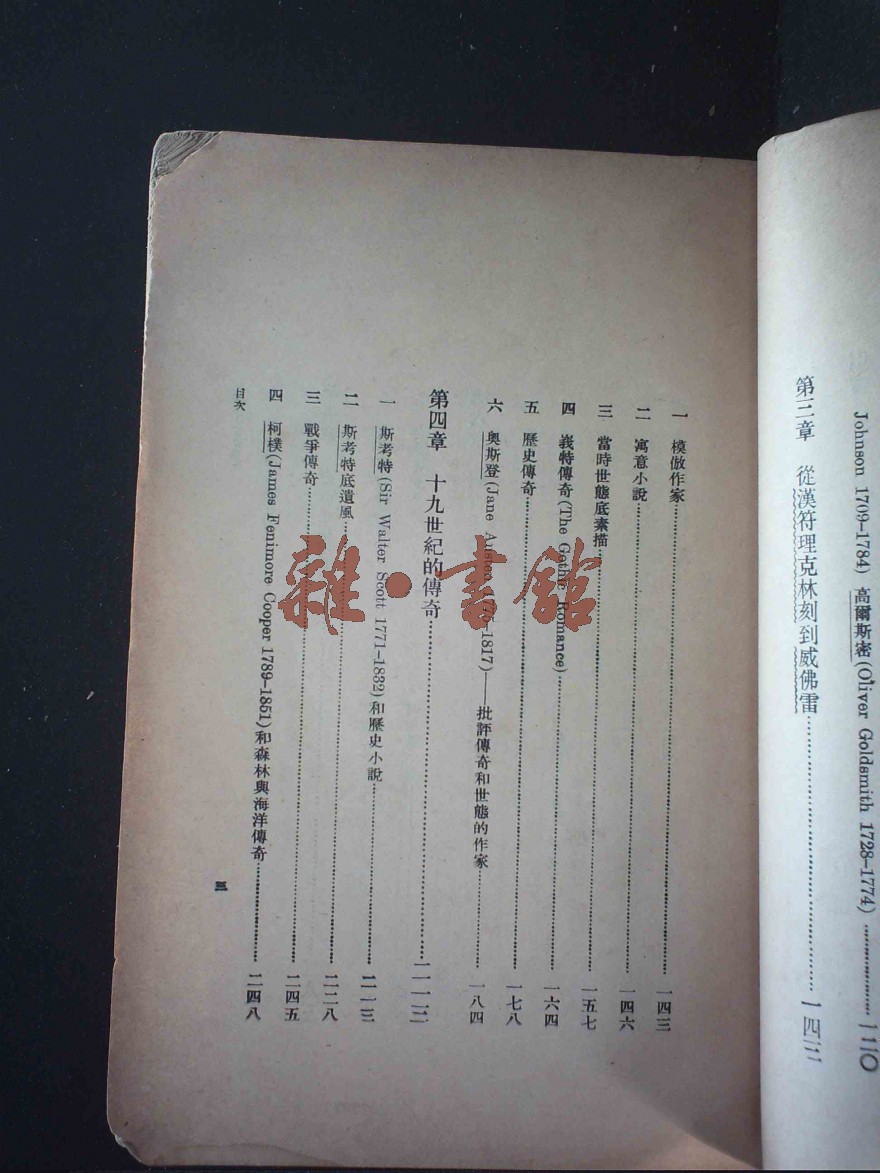 Johnson 1709–1784) 高爾斯密 (Oliver Goldsmith 1728–1774)……一一〇
第三章 從漢符理克林刻到威佛雷……一四三
一 模倣作家……一四三
二 寓意小說……一四六
三 當時世態底素描……一五七
四 義特傳奇 (The Gothic Romance)……一六四
五 歷史傳奇……一七八
六 奧斯登 (Jane Austen 1775–1817)——批評傳奇和世態的作家……一八四
第四章 十九世紀的傳奇……二一三
一 斯考特 (Sir Walter Scott 1771–1832) 和歷史小說……二一三
二 斯考特底遺風……二二八
三 戰爭傳奇……二四五
四 柯樸 (James Fenimore Cooper 1789–1851) 和森林與海洋傳奇……二四八
目次
三
雜·書館